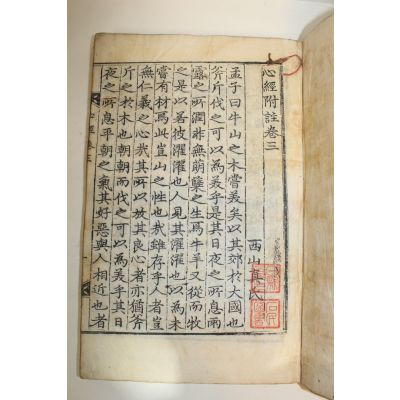 心經附註卷三
西山真氏
孟子曰牛山之木嘗美矣以其郊於大國也
斧斤伐之可以為美乎是其日夜之所息雨
露之所潤非無萌櫱之生焉牛羊又從而牧
之是以若彼濯濯也人見其濯濯也以為未
嘗有材焉此豈山之性也哉雖存乎人者豈
無仁義之心哉其所以放其良心者亦猶斧
斤之於木也朝朝而伐之可以為美乎其日
夜之所息平朝之氣其好惡與人相近也者